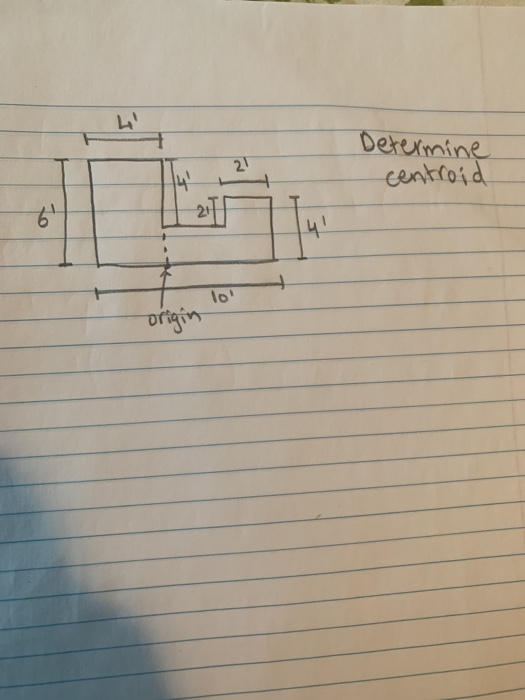 4'
Determine
centroid
2'
4'
2'
6'
4'
10'
origin